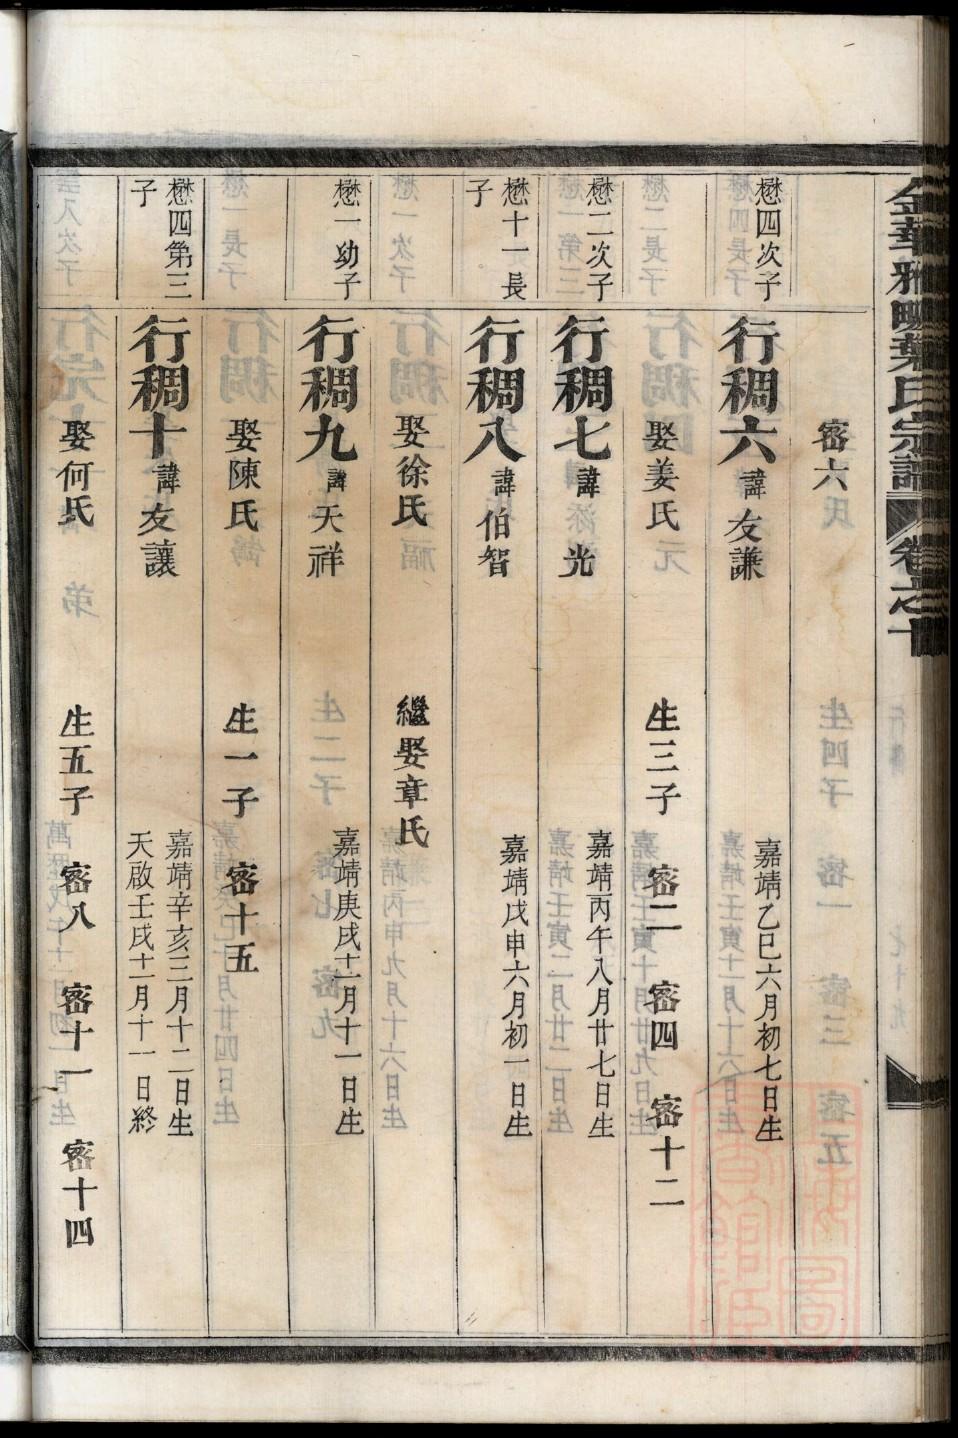 金華雅畈葉氏宗譜 卷之十
密六
懋四次子
行稠六 諱友謙
嘉靖乙巳六月初七日生
娶姜氏 生三子 密二 密四 密十二
懋二次子
行稠七 諱光
嘉靖丙午八月廿七日生
懋十一長
子
行稠八 諱伯智
嘉靖戊申六月初一日生
娶徐氏 繼娶章氏
懋一幼子
行稠九 諱天祥
嘉靖庚戌十二月十一日生
娶陳氏 生一子 密十五
懋四第三
子
行稠十 諱友讓
嘉靖辛亥三月十二日生
天啟壬戌十二月十一日終
娶何氏 生五子 密八 密十一 密十四